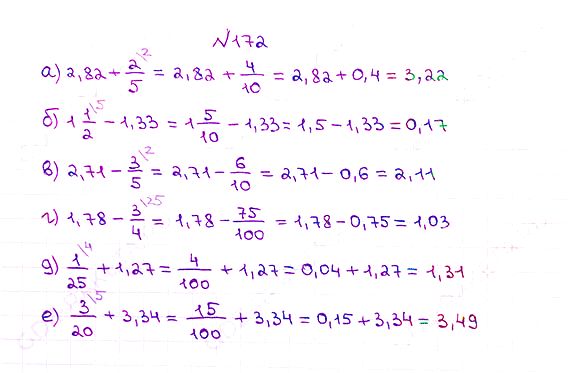 №172
а) 2,82 + 2/5 \2 = 2,82 + 4/10 = 2,82 + 0,4 = 3,22
б) 1 1/2 \5 - 1,33 = 1 5/10 - 1,33 = 1,5 - 1,33 = 0,17
в) 2,71 - 3/5 \2 = 2,71 - 6/10 = 2,71 - 0,6 = 2,11
г) 1,78 - 3/4 \25 = 1,78 - 75/100 = 1,78 - 0,75 = 1,03
д) 1/25 \4 + 1,27 = 4/100 + 1,27 = 0,04 + 1,27 = 1,31
е) 3/20 \5 + 3,34 = 15/100 + 3,34 = 0,15 + 3,34 = 3,49